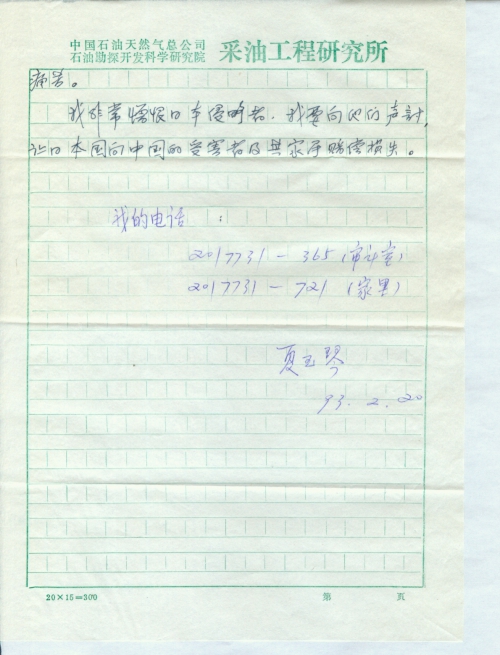 中国石油天然气总公司
石油勘探开发科学研究院 采油工程研究所
痛苦。
我非常愤恨日本侵略者，我要向他们声讨，
让日本国向中国的受害者及其家属赔偿损失。
我的电话：
2017731－365（审计室）
2017731－721（家里）
夏玉琴
93.2.20
20×15=300 第 页